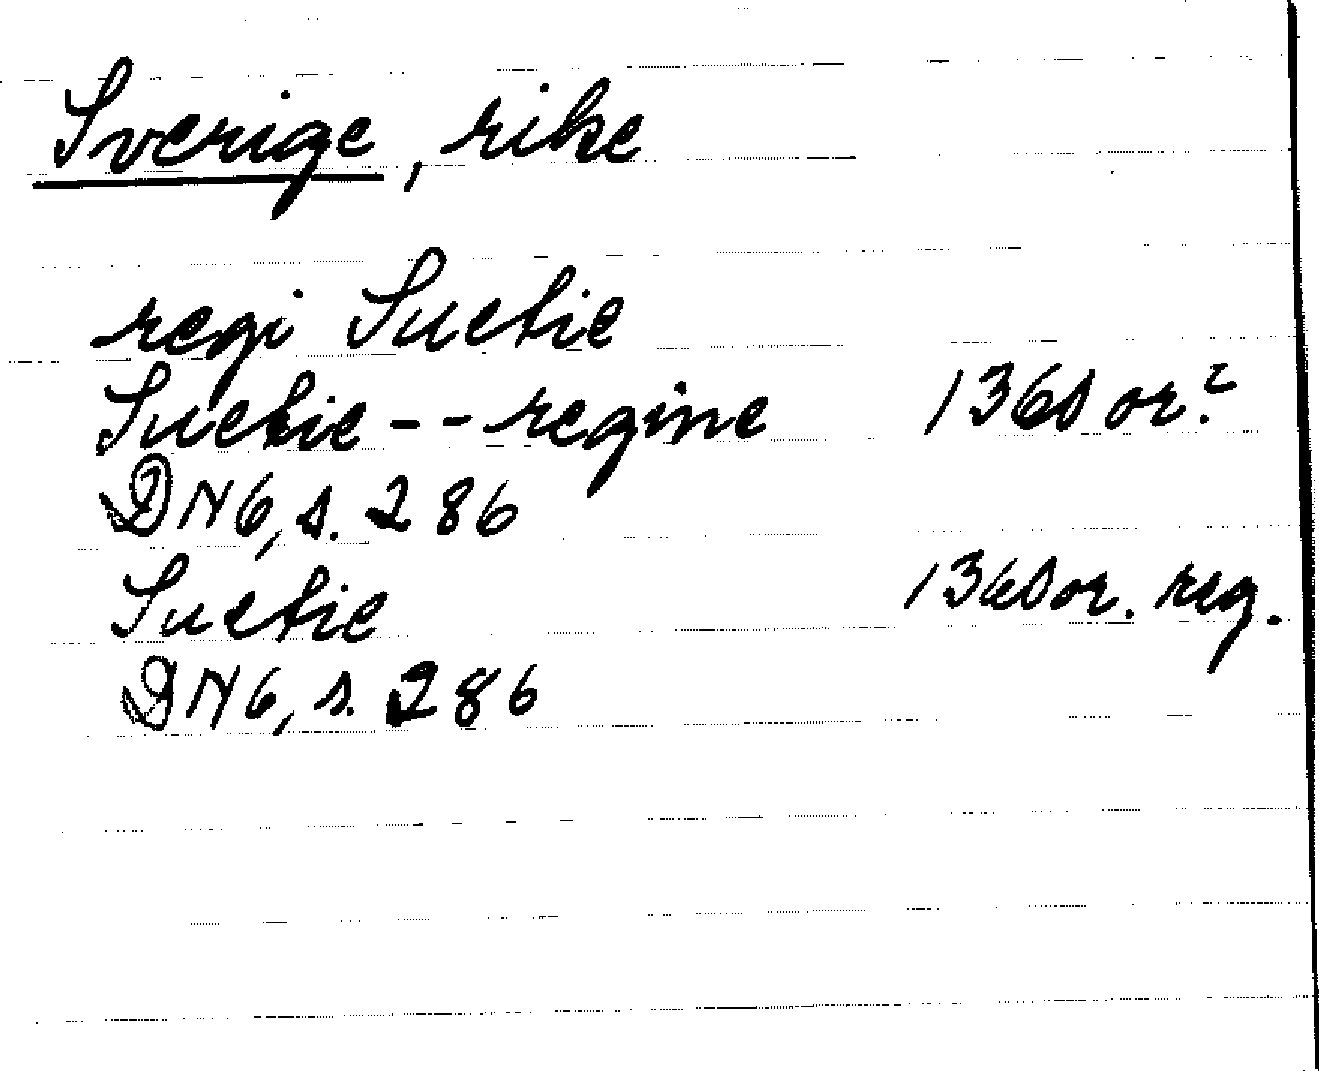 Sverige, rike
regi Suetie
Suetie -- regine 1360s or?
DN6, s. 286
Suetie 1360s or. reg.
DN6, s. 286